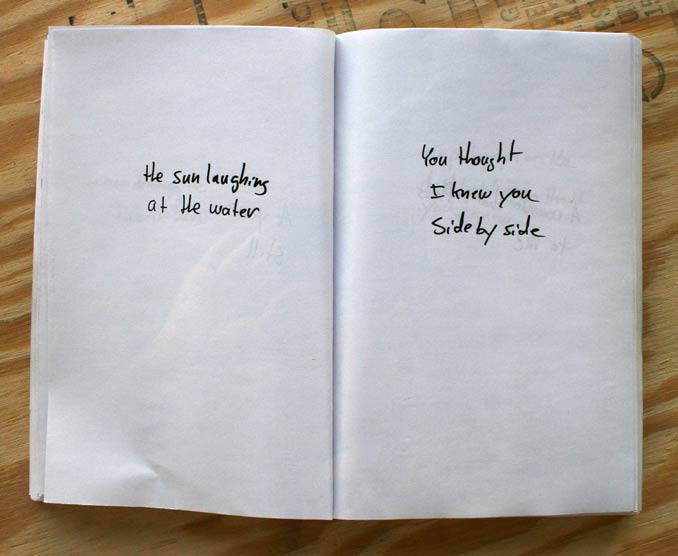 the sun laughing
at the water
You thought
I knew you
Side by side